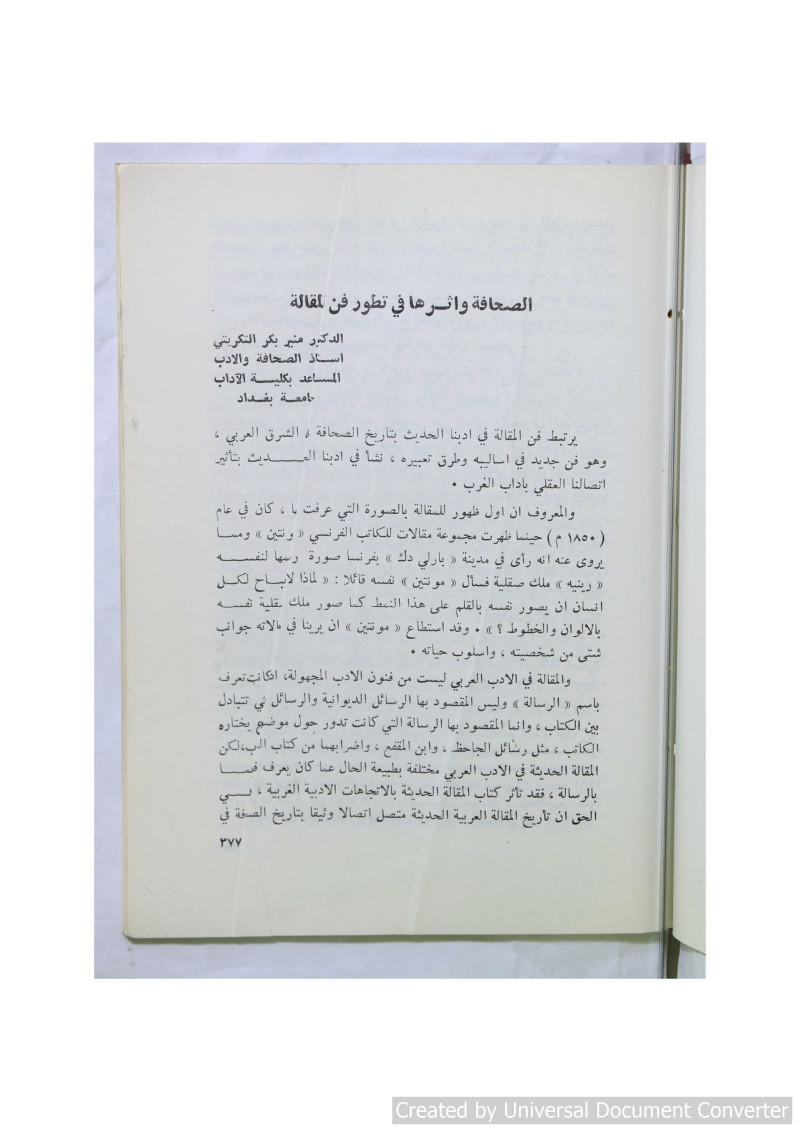 الصحافة واثـرها في تطور فن المقالة
الدكتور منير بكر التكريتي
استاذ الصحافة والادب
المساعد بكليـة الآداب
جامعـة بغـداد
يرتبط فن المقالة في ادبنا الحديث بتاريخ الصحافة في الشرق العربي ،
وهو فن جديد في اساليبه وطرق تعبيره ، نشأ في ادبنا الحديث بتأثير
اتصالنا العقلي باداب الغرب .
والمعروف ان اول ظهور للمقالة بالصورة التي عرفت بها ، كان في عام
( ١٨٥٠ م ) حينما ظهرت مجموعة مقالات للكاتب الفرنسي « ونتين » ومـا
يروى عنه انه رأى في مدينة « بارلي دك » بفرنسا صورة رسمها لنفســه
« رينيه » ملك صقلية فسأل « مونتين » نفسه قائلا : « لماذا لا يباح لكـل
انسان ان يصور نفسه بالقلم على هذا النمط كما صور ملك صقلية نفسـه
بالالوان والخطوط ؟ » . وقد استطاع « مونتين » ان يرينا في مقالاته جوانب
شتى من شخصيته ، واسلوب حياته .
والمقالة في الادب العربي ليست من فنون الادب المجهولة، اذ كانت تعرف
باسم « الرسالة » وليس المقصود بها الرسائل الديوانية والرسائل التي تتبادل
بين الكتاب ، وانما المقصود بها الرسالة التي كانت تدور حول موضوع يختاره
الكاتب ، مثل رسائل الجاحظ ، وابن المقفع ، واضرابهما من كتاب العرب، لكن
المقالة الحديثة في الادب العربي مختلفة بطبيعة الحال عما كان يعرف
بالرسالة ، فقد تأثر كتاب المقالة الحديثة بالاتجاهات الادبية الغربية ،
الحق ان تأريخ المقالة العربية الحديثة متصل اتصالا وثيقا بتاريخ الصحافة في
٣٧٧
Created by Universal Document Converter